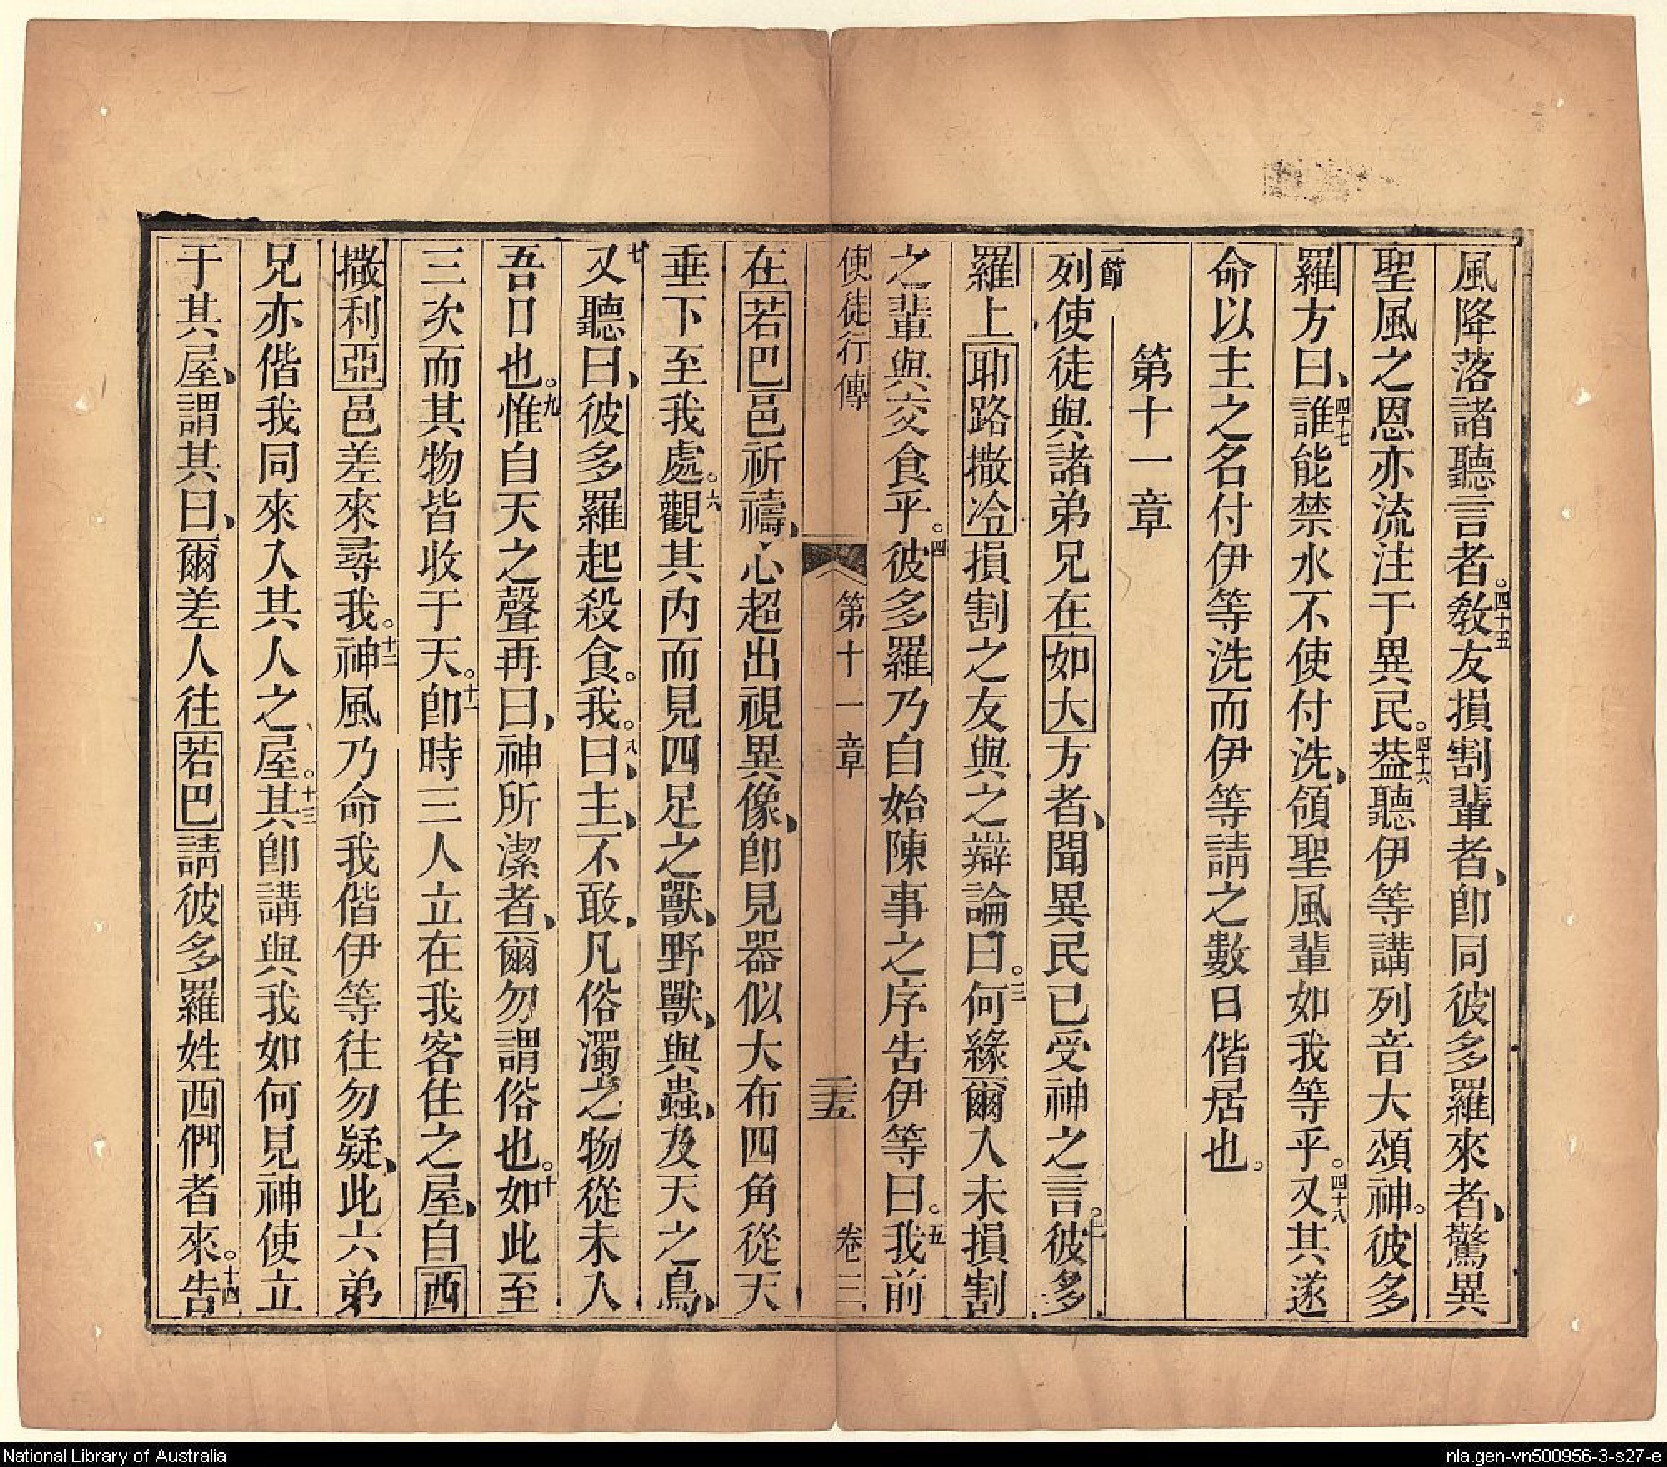 風降落諸聽言者。四十五敎友損割輩者、卽同彼多羅來者、驚異
聖風之恩亦流注于異民。四十六葢聽伊等講列音大頌神。彼多
羅方曰、四十七誰能禁水不使付洗、領聖風輩如我等乎。四十八又其遂
命以主之名付伊等洗而伊等請之數日偕居也。
第十一章
一節列使徒與諸弟兄在如大方者、聞異民已受神之言。二彼多
羅上耶路撒冷損割之友與之辯論曰。三何緣爾入未損割
之輩與六交食乎。四彼多羅乃自始陳事之序告伊等曰。五我前
使徒行傳 第十一章 二十五 卷三
在若巴邑祈禱、心超出視異像、卽見器似大布四角從天
垂下至我處。六觀其內而見四足之獸、野獸、與蟲、及天之鳥、
七又聽曰、彼多羅起殺食。我。八曰、主、不敢、凡俗濁之物從未入
吾口也。九惟自天之聲再曰、神所潔者、爾勿謂俗也。十如此至
三次而其物皆收于天。十一卽時三人立在我客住之屋、自西
撒利亞邑差來尋我。十二神風乃命我偕伊等往勿疑、此六弟
兄亦偕我同來入其人之屋。十三其卽講與我如何見神使立
于其屋、謂其曰、爾差人往若巴請彼多羅姓西們者來。十四告
National Library of Australia
nla.gen-vn500956-3-s27-e